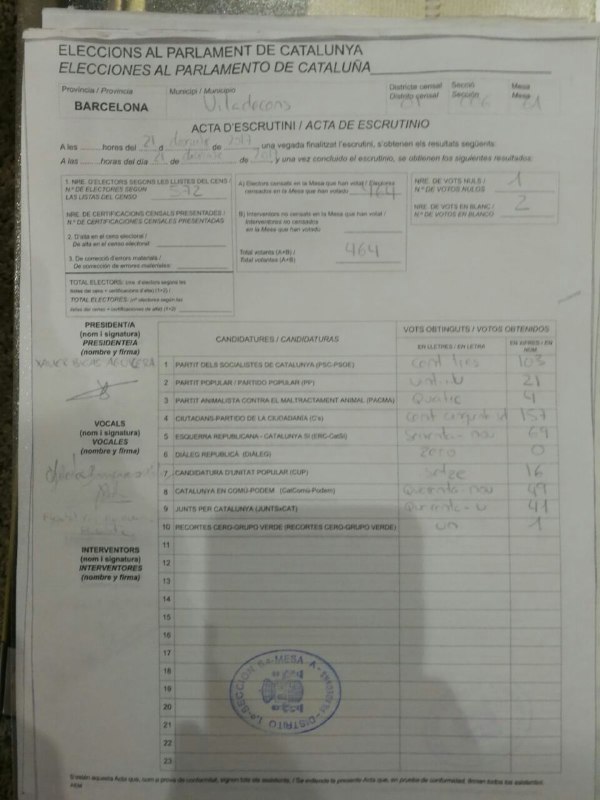 ELECCIONS AL PARLAMENT DE CATALUNYA
ELECCIONES AL PARLAMENTO DE CATALUÑA
Província / Provincia
BARCELONA
Municipi / Municipio
Viladecans
Districte censal
Distrito censal
Secció
Sección
Mesa
Mesa
ACTA D'ESCRUTINI / ACTA DE ESCRUTINIO
A les ........ hores del 21 d de 2017, una vegada finalitzat l'escrutini, s'obtenen els resultats següents:
A las ........ horas del día 21 de de y una vez concluido el escrutinio, se obtienen los siguientes resultados:
1. NRE. D'ELECTORS SEGONS LES LLISTES DEL CENS /
N.º DE ELECTORES SEGÚN
LAS LISTAS DEL CENSO
572
NRE. DE CERTIFICACIONS CENSALS PRESENTADES /
N.º DE CERTIFICACIONES CENSALES PRESENTADAS
2. D'alta en el cens electoral /
De alta en el censo electoral:
3. De correcció d'errors materials /
De corrección de errores materiales:
TOTAL ELECTORS: (nre. d'electors segons les
llistes del cens + certificacions d'alta) (1+2) /
TOTAL ELECTORES: (nº electores según las
listas del censo + certificaciones de alta) (1+2)
A) Electors censats en la Mesa que han votat / Electores
censados en la Mesa que han votado
464
B) Interventors no censats en la Mesa que han votat /
Interventores no censados
en la Mesa que han votado
Total votants (A+B) /
Total votantes (A+B)
464
NRE. DE VOTS NULS /
N.º DE VOTOS NULOS
1
NRE. DE VOTS EN BLANC /
N.º DE VOTOS EN BLANCO
2
PRESIDENT/A
(nom i signatura)
PRESIDENTE/A
(nombre y firma)
VOCALS
(nom i signatura)
VOCALES
(nombre y firma)
INTERVENTORS
(nom i signatura)
INTERVENTORES
(nombre y firma)
CANDIDATURES / CANDIDATURAS
VOTS OBTINGUTS / VOTOS OBTENIDOS
EN LLETRES / EN LETRA
EN XIFRES / EN NÚM.
1 PARTIT DELS SOCIALISTES DE CATALUNYA (PSC-PSOE) cent tres 103
2 PARTIT POPULAR / PARTIDO POPULAR (PP) vint-i-u 21
3 PARTIT ANIMALISTA CONTRA EL MALTRACTAMENT ANIMAL (PACMA) Quatre 4
4 CIUTADANS-PARTIDO DE LA CIUDADANÍA (C's) 157
5 ESQUERRA REPUBLICANA - CATALUNYA SÍ (ERC-CatSí) Seixanta-nou 69
6 DIÀLEG REPUBLICÀ (DIÀLEG) zero 0
7 CANDIDATURA D'UNITAT POPULAR (CUP) setze 16
8 CATALUNYA EN COMÚ-PODEM (CatComú-Podem) Quaranta-nou 49
9 JUNTS PER CATALUNYA (JUNTSxCAT) Quaranta-u 41
10 RECORTES CERO-GRUPO VERDE (RECORTES CERO-GRUPO VERDE) un 1
11
12
13
14
15
16
17
18
19
20
21
22
23